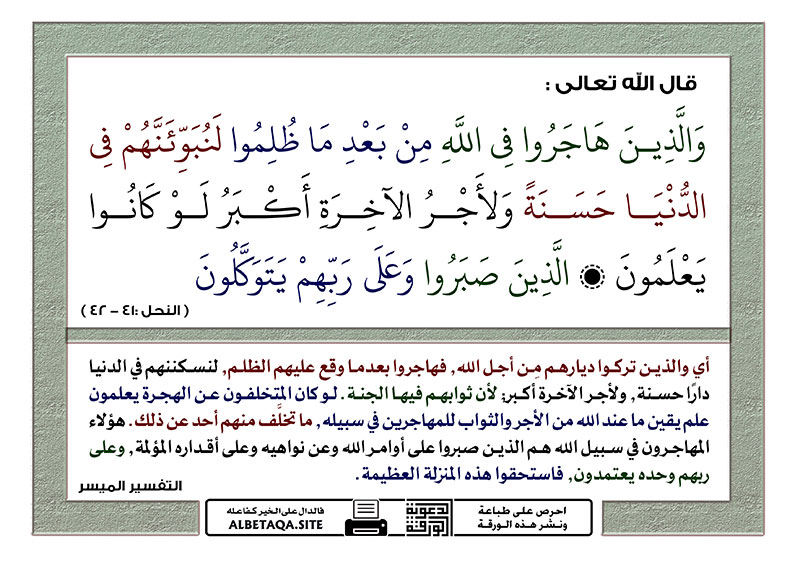 قال الله تعالى :
وَالَّذِينَ هَاجَرُوا فِي اللَّهِ مِنْ بَعْدِ مَا ظُلِمُوا لَنُبَوِّئَنَّهُمْ فِي
الدُّنْيَا حَسَنَةً وَلَأَجْرُ الآخِرَةِ أَكْبَرُ لَوْ كَانُوا
يَعْلَمُونَ ۝ الَّذِينَ صَبَرُوا وَعَلَى رَبِّهِمْ يَتَوَكَّلُونَ
( النحل :٤١ - ٤٢ )
أي والذين تركوا ديارهم مِن أجل الله, فهاجروا بعدما وقع عليهم الظلم, لنسكننهم في الدنيا
دارًا حسنة, ولأجر الآخرة أكبر; لأن ثوابهم فيها الجنة. لو كان المتخلفون عن الهجرة يعلمون
علم يقين ما عند الله من الأجر والثواب للمهاجرين في سبيله, ما تخلَّف منهم أحد عن ذلك. هؤلاء
المهاجرون في سبيل الله هم الذين صبروا على أوامر الله وعن نواهيه وعلى أقداره المؤلمة, وعلى
ربهم وحده يعتمدون, فاستحقوا هذه المنزلة العظيمة.
التفسير الميسر
احرص على طباعة
ونشر هذه الورقة
الدعوية
الورقة
فالدال على الخير كفاعله
ALBETAQA.SITE